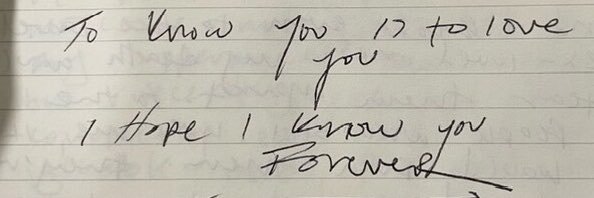 To Know you is to love
you
I Hope I Know you
Forever